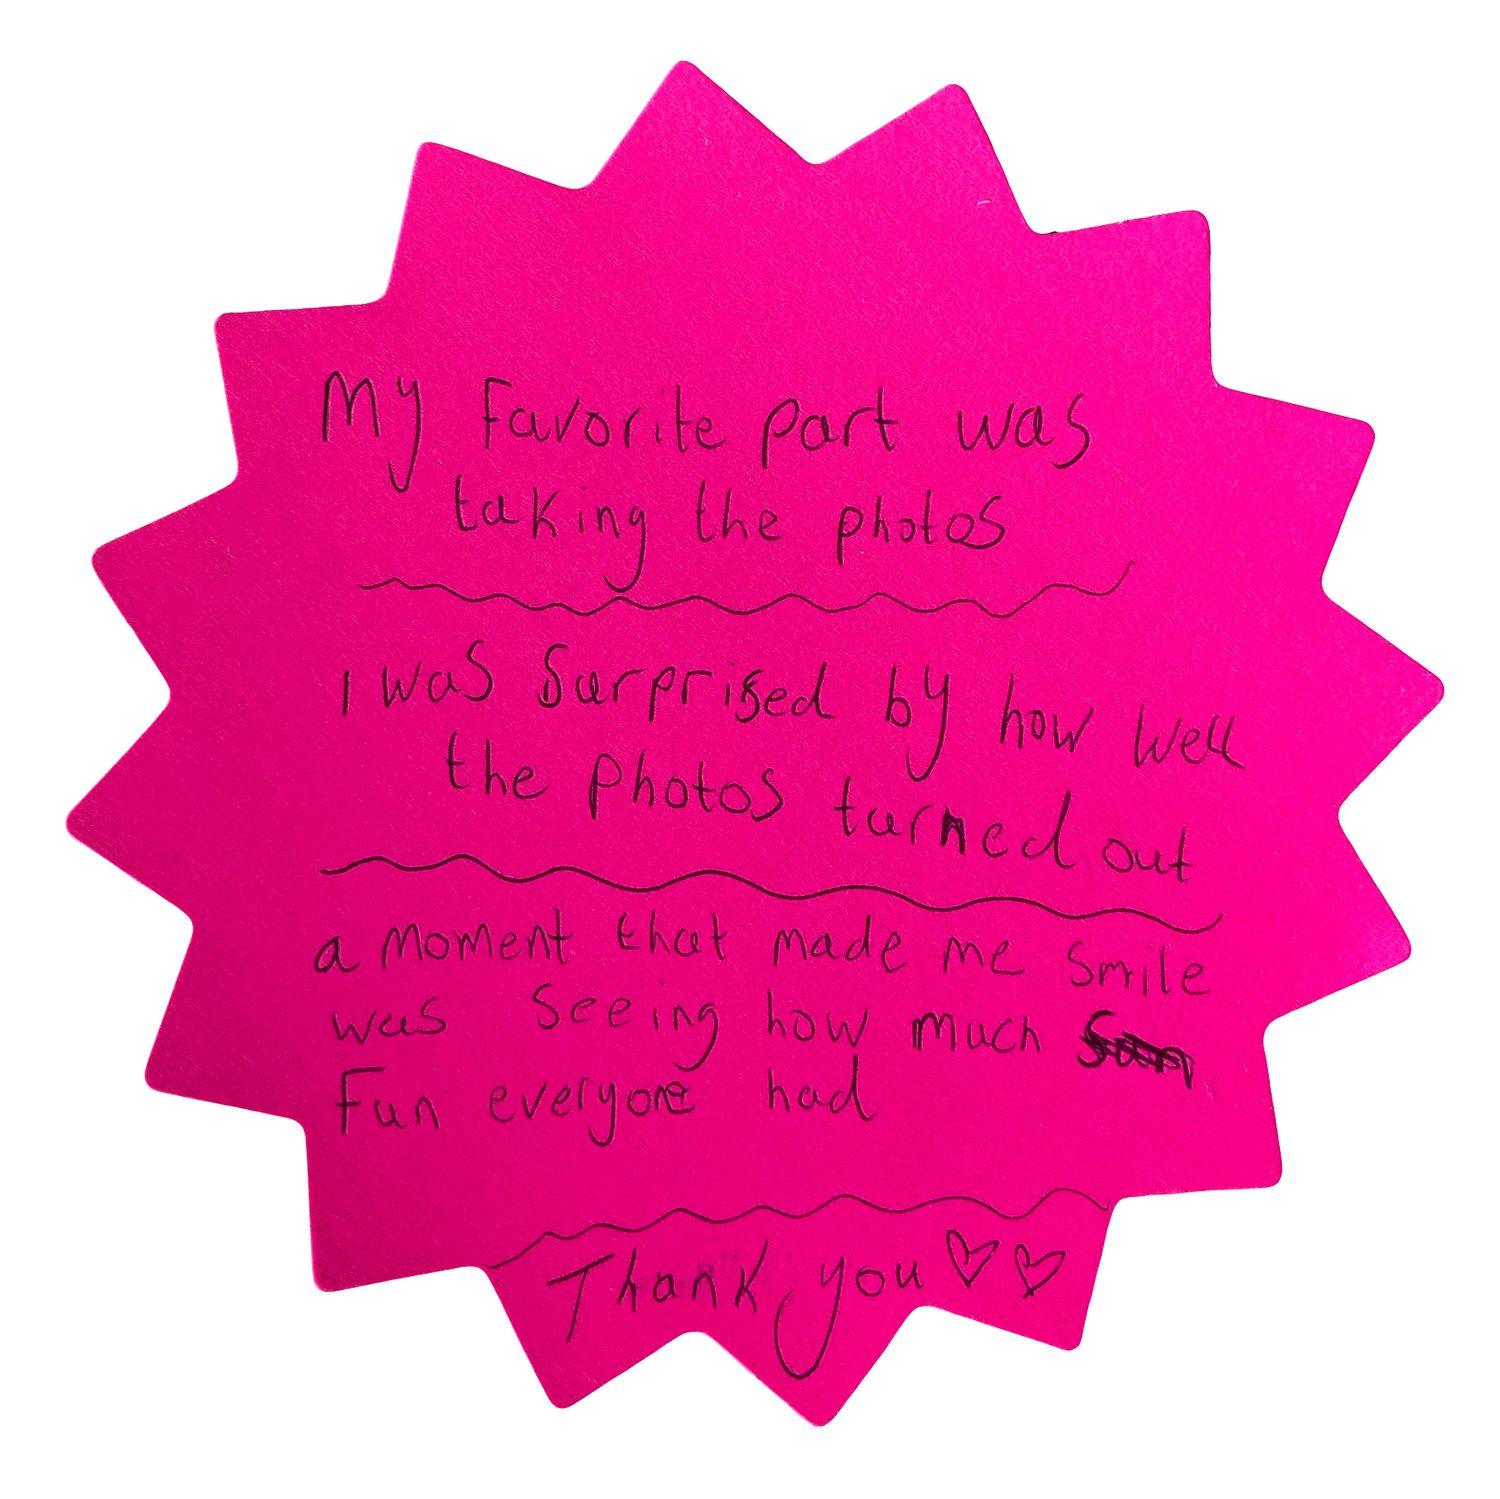 My Favorite part was
taking the photos
I was Surprised by how well
the photos turned out
a moment that made me smile
was seeing how much
Fun everyone had
Thank you ♡♡